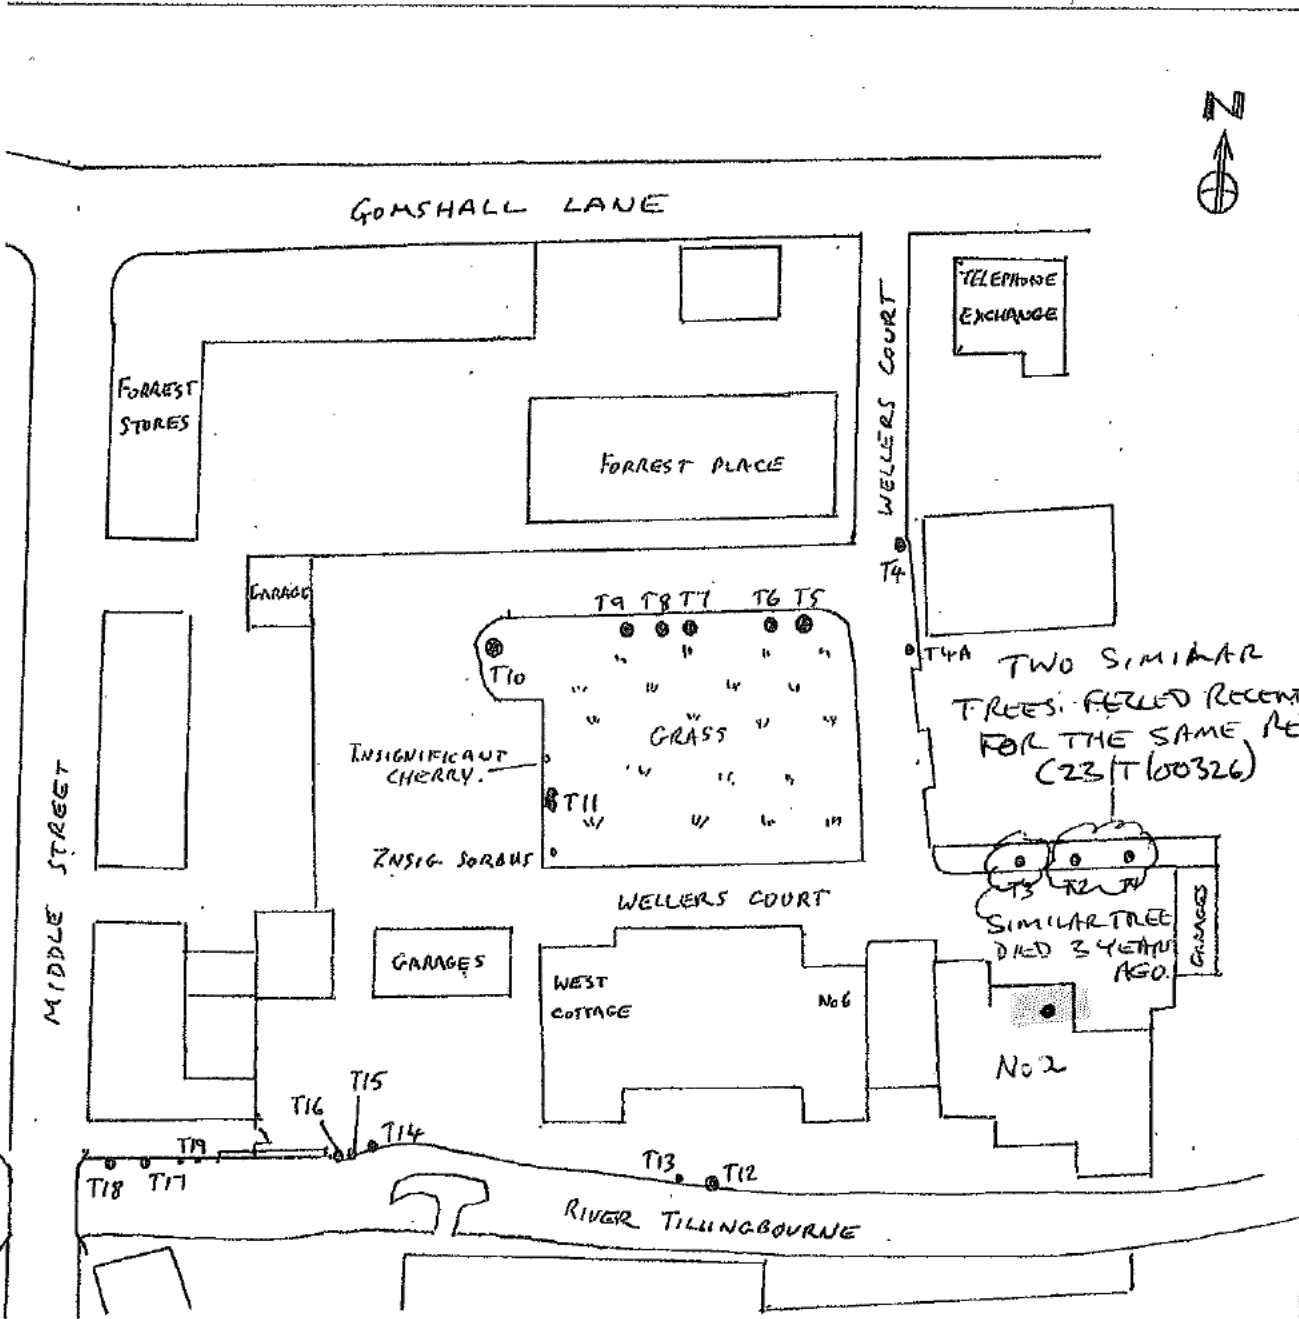 N
GOMSHALL LANE
TELEPHONE
EXCHANGE
WELLERS COURT
FORREST
STORES
FORREST PLACE
T4
GARAGE
T9 T8 T7 T6 T5
T10
T4A
TWO SIMILAR
TREES. FELLED RECENT
FOR THE SAME RE
(23/T/00326)
GRASS
INSIGNIFICANT
CHERRY.
T11
MIDDLE STREET
INSIG. SORBUS
T3 T2 T1
WELLERS COURT
SIMILAR TREE
DIED 3 YEARS
AGO.
GARAGES
GARAGES
WEST
COTTAGE
No6
No2
T15
T16
T14
T19
T18 T17
T13 T12
RIVER TILLINGBOURNE